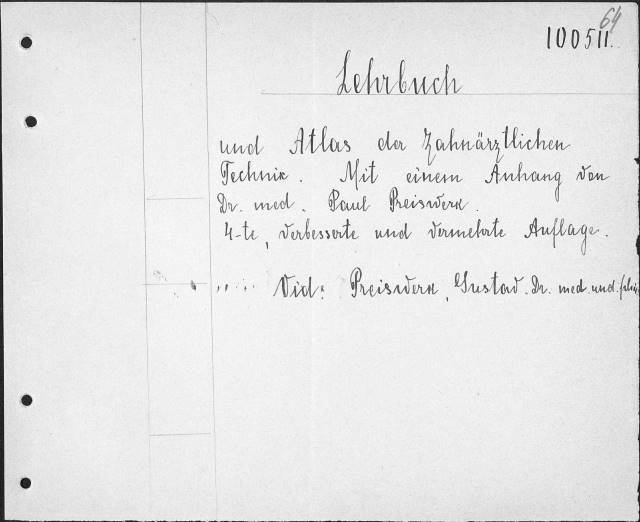 64
100511.
Lehrbuch
und Atlas der Zahnärztlichen
Technik. Mit einem Anhang von
Dr. med. Paul Preiswerk.
4-te, verbesserte und vermehrte Auflage.
Vid: Preiswerk, Gustav. Dr. med. und.